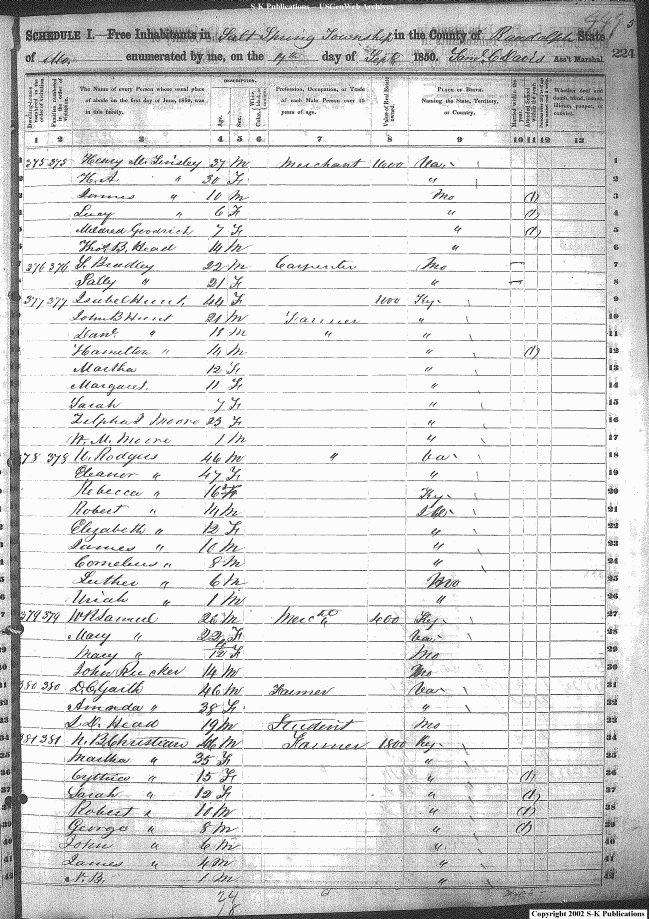 S-K Publications - USGenWeb Archives
SCHEDULE I.—Free Inhabitants in Salt Spring Township in the County of Randolph State
of Mo. enumerated by me, on the 9th day of Sept 1850. Ass't Marshal. 224
Dwelling-houses numbered in the order of visitation.
Families numbered in the order of visitation.
The Name of every Person whose usual place of abode on the first day of June, 1850, was in this family.
DESCRIPTION.
Age.
Sex.
Profession, Occupation, or Trade of each Male Person over 15 years of age.
Value of Real Estate owned.
PLACE OF BIRTH. Naming the State, Territory, or Country.
Whether deaf and dumb, blind, insane, idiotic, pauper, or convict.
1 2 3 4 5 6 7 8 9 10 11 12 13
1 375 375 Henry M. Linsley 37 M Merchant 1600 Va.
2 H. A " 30 F "
3 James " 10 M Mo (1)
4 Lucy " 6 F " (1)
5 Mildred Goodrich 7 F " (1)
6 Thos B. Head 14 M "
7 376 376 Bradley 22 M Carpenter Mo
8 Sally " 21 F "
9 377 377 Isabel Hunt 44 F 1000 Ky.
10 John B Hunt 21 M Farmer "
11 Danl " 18 M " "
12 Hamilton " 14 M " (1)
13 Martha 12 F "
14 Margaret 11 F "
15 Sarah 7 F "
16 Zilpha Moore 23 F "
17 W. M. Moore 1 M "
18 378 378 Rodgers 46 M " Va.
19 Eleanor " 47 F "
20 Rebecca " 16 F Ky.
21 Robert " 14 M
22 Elizabeth " 12 F "
23 James " 10 M "
24 Cornelius " 8 M "
25 Luther " 6 M Mo
26 Uriah " 1 M "
27 379 379 W R Samuel 26 M 400 Ky.
28 Mary " 22 F Va.
29 Mary " F Mo
30 John Rucker 14 M Mo
31 380 380 D. C. Garth 46 M Farmer Va.
32 Amanda " 38 F "
33 Head 19 M Student Mo
34 381 381 N. B. Christian 46 M Farmer 1800 Ky.
35 Martha " 35 F "
36 " 15 F " (1)
37 Sarah " 12 F " (1)
38 Robert " 10 M " (1)
39 George " 8 M " (1)
40 John " 6 M "
41 James " 4 M "
42 N. B. 1 M "
24
18
Copyright 2002 S-K Publications